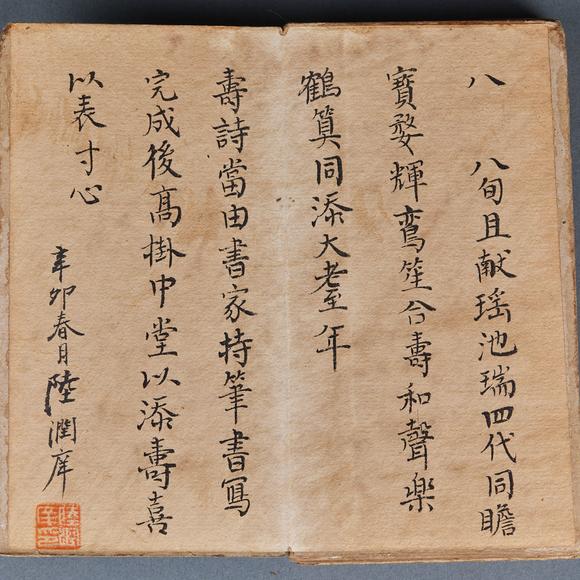 八　八旬且献瑶池瑞四代同瞻
寶婺輝鸾笙合壽和聲樂
鶴算同添大耋年
壽詩當由書家持筆書寫
完成後高掛中堂以添壽喜
以表寸心
辛卯春月陸潤庠